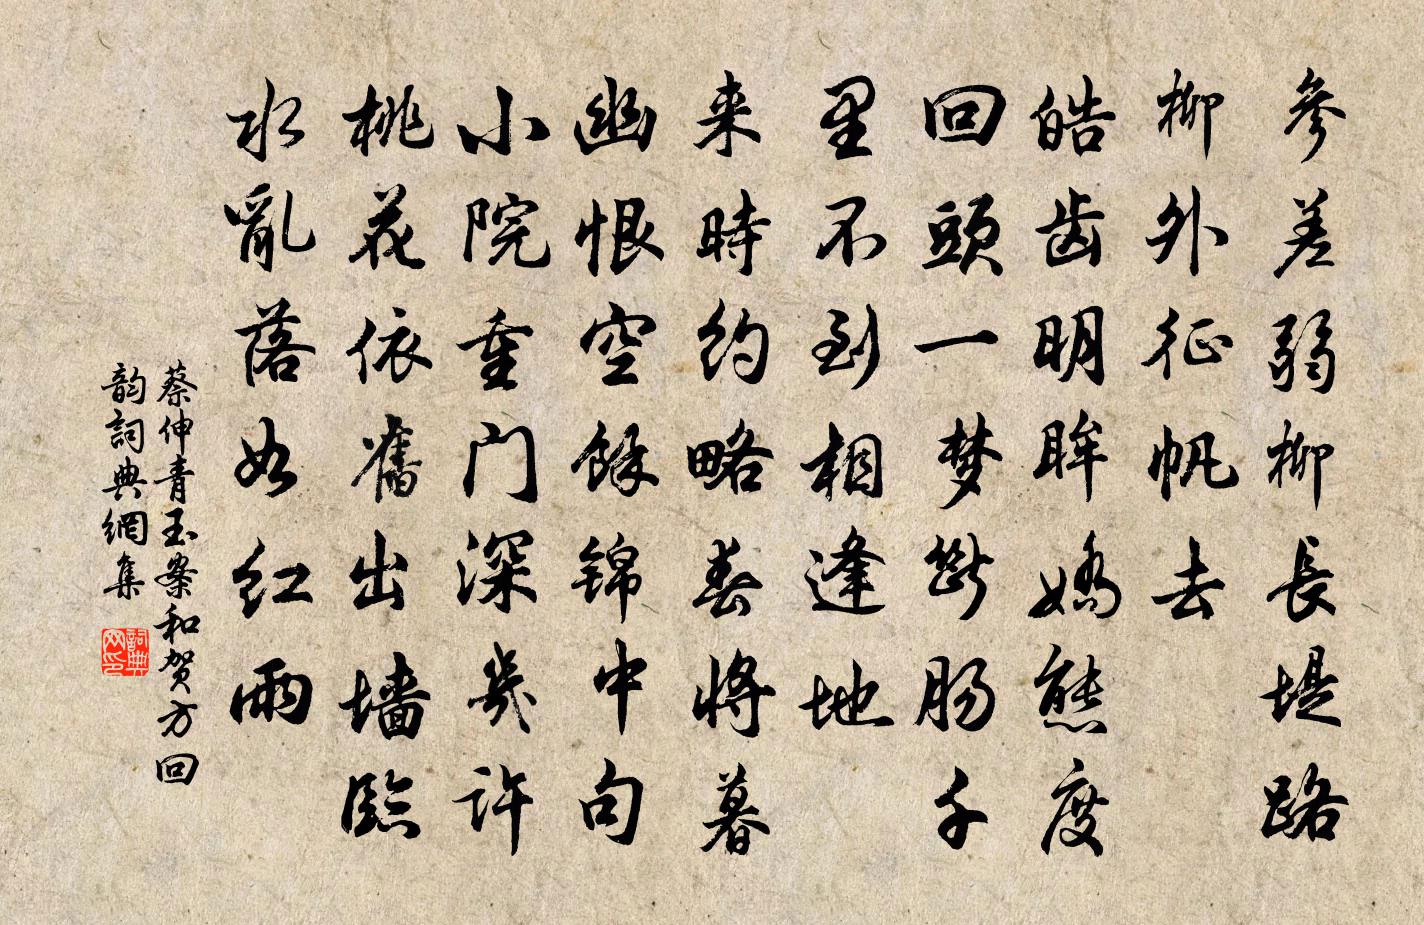 參差弱柳長堤路
柳外征帆去
皓齿明眸嬌態度
回頭一梦断肠千
里不到相逢地
来時約略春將暮
幽恨空餘錦中句
小院重门深幾許
桃花依舊出墙臨
水亂落如红雨
蔡伸青玉案和贺方回
韵詞典網集
詞典网印